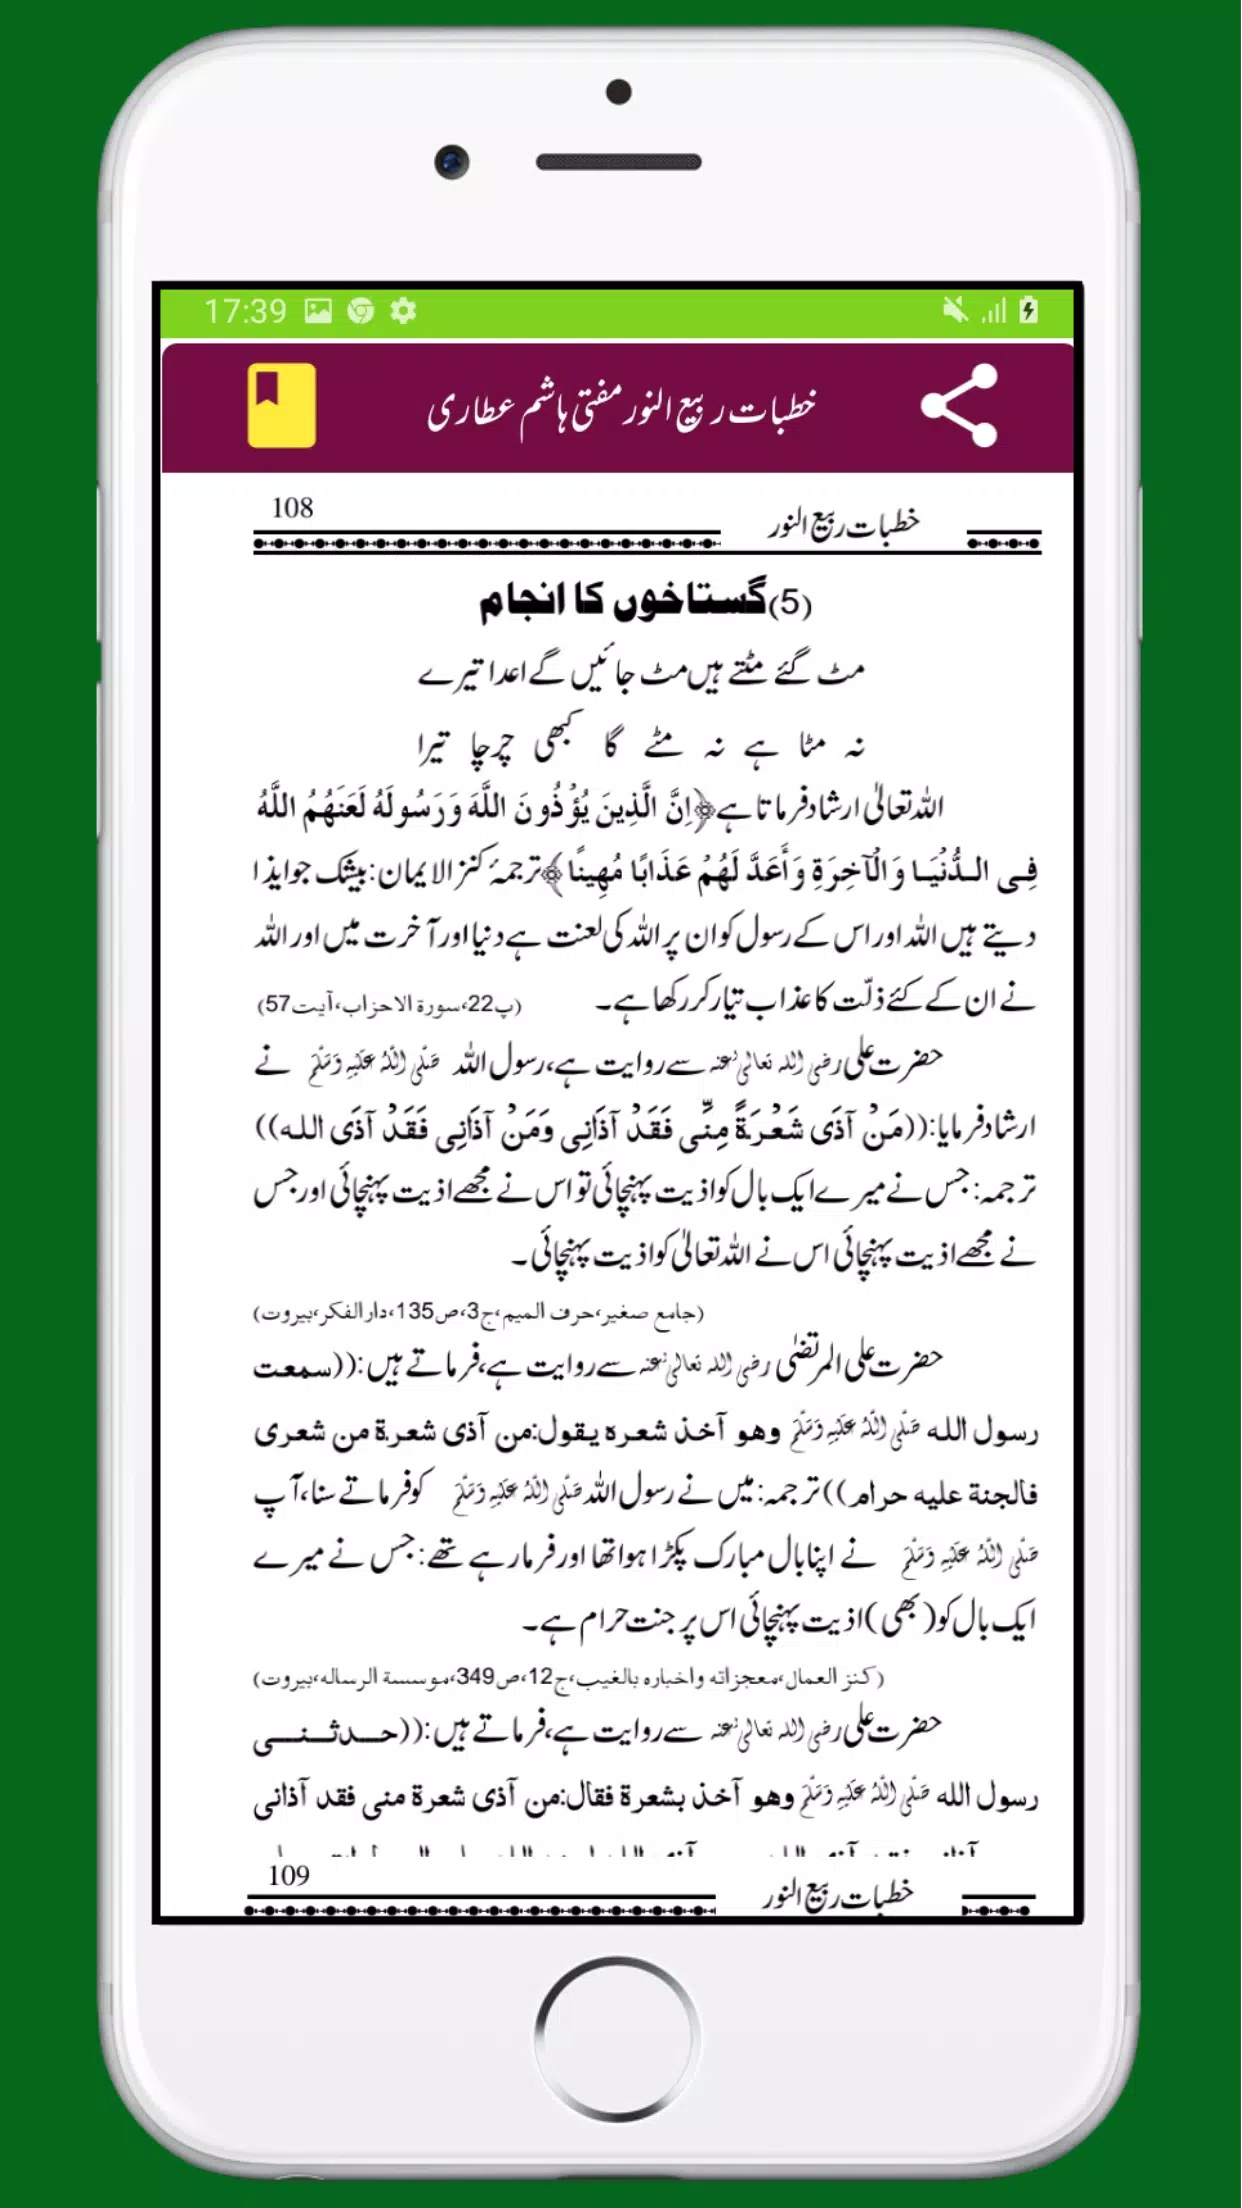 17:39
خطبات ربیع النور مفتی ہاشم عطاری
108
خطبات ربیع النور
(5) گستاخوں کا انجام
مٹ گئے مٹتے ہیں مٹ جائیں گے اعدا تیرے
نہ مٹا ہے نہ مٹے گا کبھی چرچا تیرا
اللہ تعالیٰ ارشاد فرماتا ہے ﴿اِنَّ الَّذِينَ يُؤْذُونَ اللَّهَ وَرَسُولَهُ لَعَنَهُمُ اللَّهُ
فِي الدُّنْيَا وَالْآخِرَةِ وَأَعَدَّ لَهُمْ عَذَابًا مُهِينًا﴾ ترجمۂ کنز الایمان: بیشک جو ایذا
دیتے ہیں اللہ اور اس کے رسول کو ان پر اللہ کی لعنت ہے دنیا اور آخرت میں اور اللہ
نے ان کے لئے ذلّت کا عذاب تیار کر رکھا ہے۔ (پ22،سورة الاحزاب،آیت57)
حضرت علی رضی اللہ تعالیٰ عنہ سے روایت ہے، رسول اللہ صَلَّی اللّٰہُ عَلَیْہِ وَسَلَّمَ نے
ارشاد فرمایا: ((مَنْ آذَى شَعْرَةً مِنِّي فَقَدْ آذَانِي وَمَنْ آذَانِي فَقَدْ آذَى الله))
ترجمہ: جس نے میرے ایک بال کو اذیت پہنچائی تو اس نے مجھے اذیت پہنچائی اور جس
نے مجھے اذیت پہنچائی اس نے اللہ تعالیٰ کو اذیت پہنچائی۔
(جامع صغیر،حرف المیم،ج3،ص135،دارالفکر،بیروت)
حضرت علی المرتضیٰ رضی اللہ تعالیٰ عنہ سے روایت ہے، فرماتے ہیں: ((سمعت
رسول الله صَلَّی اللّٰہُ عَلَیْہِ وَسَلَّمَ وهو آخذ شعره يقول:من آذى شعرة من شعرى
فالجنة عليه حرام)) ترجمہ: میں نے رسول اللہ صَلَّی اللّٰہُ عَلَیْہِ وَسَلَّمَ کو فرماتے سنا، آپ
صَلَّی اللّٰہُ عَلَیْہِ وَسَلَّمَ نے اپنا بال مبارک پکڑا ہوا تھا اور فرما رہے تھے: جس نے میرے
ایک بال کو (بھی) اذیت پہنچائی اس پر جنت حرام ہے۔
(کنز العمال،معجزاته واخباره بالغیب،ج12،ص349،موسسة الرساله،بیروت)
حضرت علی رضی اللہ تعالیٰ عنہ سے روایت ہے، فرماتے ہیں: ((حدثنى
رسول الله صَلَّی اللّٰہُ عَلَیْہِ وَسَلَّمَ وهو آخذ بشعرة فقال:من آذى شعرة منى فقد آذانى
109
خطبات ربیع النور